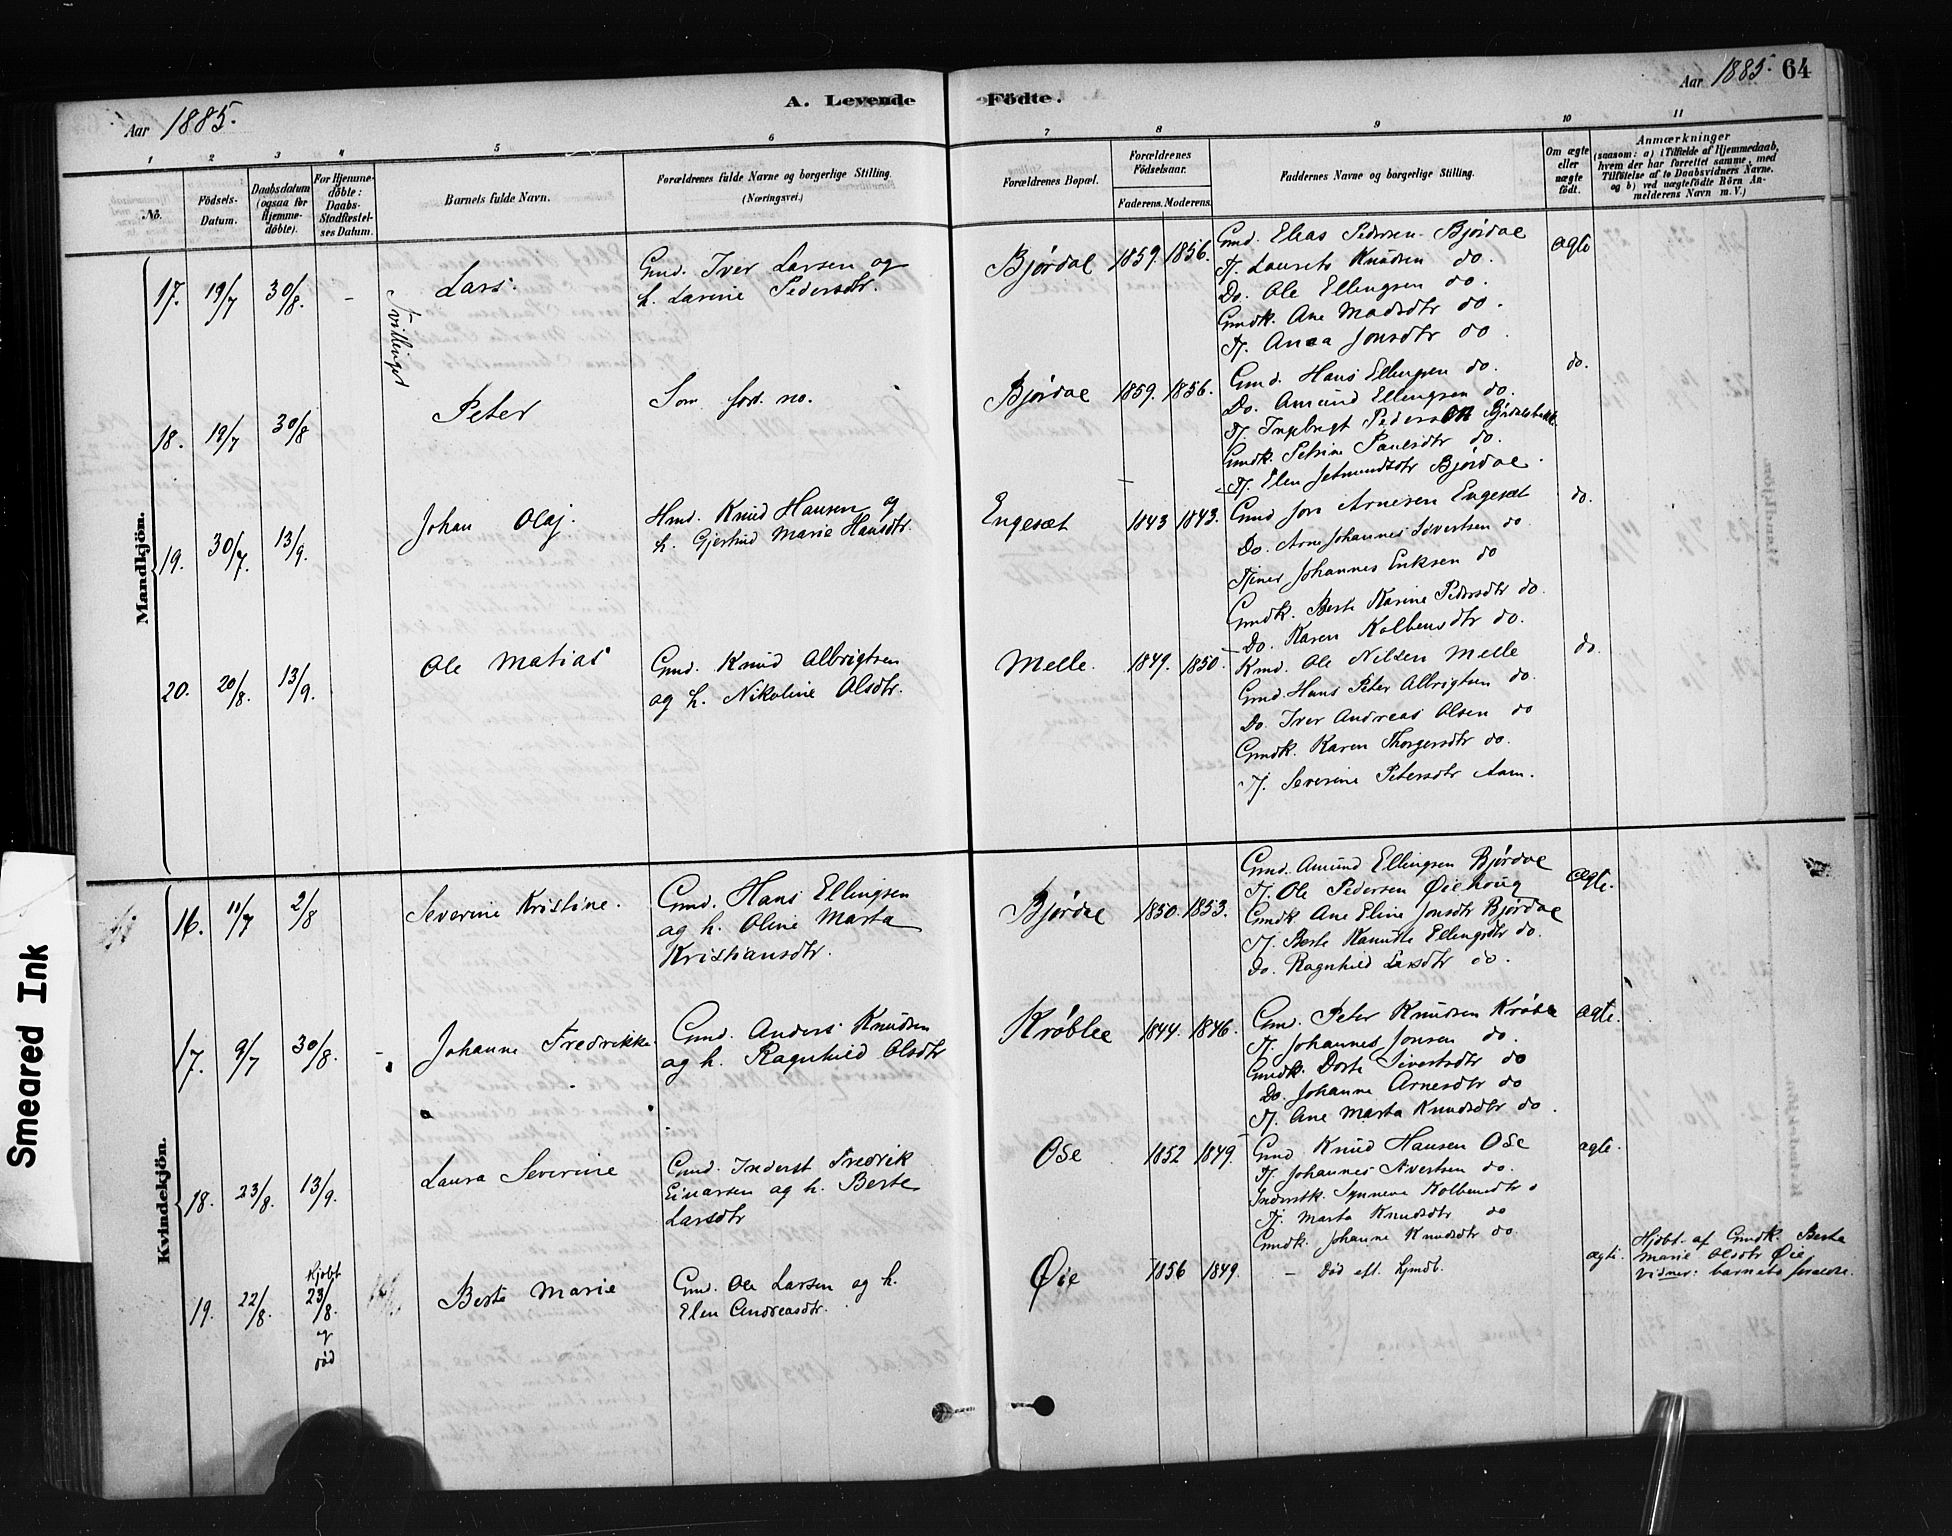 Aar 1885.
A. Levende Födte.
Aar 1885. 64
1 2 3 4 5 6 7 8 9 10 11
No.
Födsels-Datum.
Daabsdatum (ogsaa for Hjemme-döbte).
For Hjemme-döbte: Daabs-Stadfæstel-ses Datum.
Barnets fulde Navn.
Forældrenes fulde Navne og borgerlige Stilling.
(Næringsvei.)
Forældrenes Bopæl.
Forældrenes Födselsaar.
Faderens. Moderens.
Faddernes Navne og borgerlige Stilling.
Om ægte eller uægte födt.
Anmærkninger
(saasom: a) i Tilfælde af Hjemmedaab,
hvem der har forrettet samme, med
Tilföielse af to Daabsvidners Navne.
og b) ved uægtefödte Börn An-
melderens Navn m. V.)
Mandkjön.
Tvillinger
17. 19/7 30/8. - Lars.
Gmd. Iver Larsen og
h. Larine Pedersdtr.
Bjørdal 1859. 1856.
Gmd. Elias Pedersen Bjørdal
Tj. Laurits Knudsen do.
Do. Ole Ellingsen do.
Gmdk. Ane Madsdtr do.
Tj. Anna Jonsdtr do.
ægte
18. 19/7 30/8 Peter
Som forr. no.
Bjørdal 1859. 1856.
Gmd. Hans Ellingsen do.
Do. Amund Ellingsen do.
Tj. Ingebrigt Pedersen Bjørdalsbakk
Gmdk. Petrine Paulsdtr do.
Tj. Elen Jetmundsdtr Bjørdal.
do.
19. 30/7. 13/9. Johan Olaf.
Hmd. Knud Hansen og
h. Gjertrud Marie Hansdtr.
Engesæt 1843 1843.
Gmd Jon Arnesen Engesæt
Do. Arne Johannes Sivertsen do.
Tjener Johannes Eriksen do
Gmdk. Berte Karine Pedersdtr do.
Do. Karen Kolbensdtr do.
do.
20. 20/8. 13/9. Ole Matias
Gmd. Knud Albrigtsen
og h. Nikoline Olsdtr.
Melle. 1849. 1850.
Kmd. Ole Nilsen Melle
Gmd. Hans Peter Albrigtsen do.
Do. Iver Andreas Olsen do
Gmdk. Karen Thorgersdtr do.
Tj. Severine Petersdtr Aam.
do.
Kvindekjön.
16. 11/7 2/8 Severine Kristine.
Gmd. Hans Ellingsen
og h. Oline Marta
Kristiansdtr.
Bjørdal 1850. 1853.
Gmd. Amund Ellingsen Bjørdal
Tj. Ole Pedersen Øiehoug
Gmdk. Ane Eline Jonsdtr Bjørdal
Tj. Berte Kanutte Ellingsdtr do.
do. Ragnhild Larsdtr do.
ægte.
17. 9/7 30/8. - Johanne Fredrikke
Gmd. Anders Knudsen
og h. Ragnhild Olsdtr
Krøblie 1844. 1846.
Gmd. Peter Knudsen Krøbli
Tj. Johannes Jonsen do.
Gmdk. Dorte Sivertsdtr do
Do. Johanne Arnesdtr do
Tj. Ane Marta Knudsdtr do.
ægte.
18. 23/8. 13/9. Laura Severine
Gmd. Inderst Fredrik
Einarsen og h. Berte
Larsdtr
Ose 1852 1849.
Gmd Knud Hansen Ose
Tj. Johannes Sivertsen do.
Inderstk. Synneve Kolbensdtr
Tj. Marta Knudsdtr do
Gmdk. Johanne Knudsdtr do.
ægte.
19. 22/8. Hjdbt 23/8. og død Berte Marie
Gmd. Ole Larsen og h.
Elen Andreasdtr.
Øie 1856 1849.
- Død eft. hjmdb.
ægte.
Hjdbt. af Gmdk. Berte
Marie Olsdtr Øie
Vidner: barnets forældre.
Smeared Ink